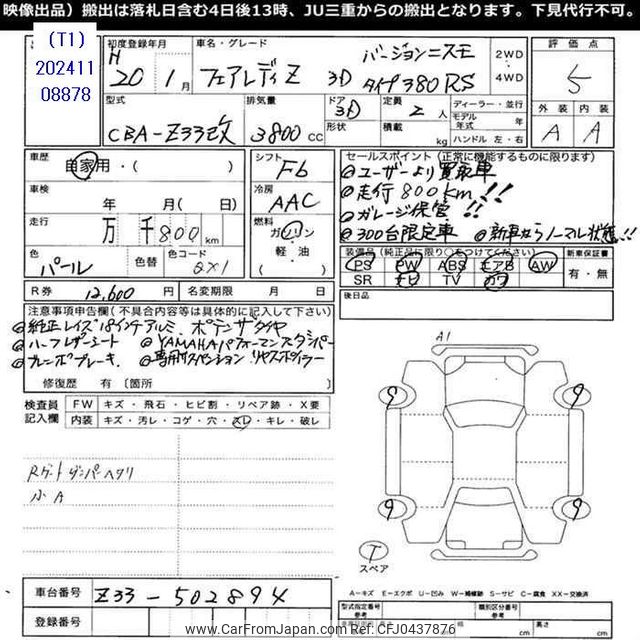 映像出品）搬出は落札日含む4日後13時、JU三重からの搬出となります。下見代行不可。
(T1)
202411
08878
初度登録年月
H
20年1月
車名・グレード
フェアレディZ 3D
バージョンニスモ
タイプ380RS
2WD
4WD
評価点
5
型式
CBA-Z33改
排気量
3800cc
ドア
3D
形状
定員
2人
積載
kg
ディーラー・並行
モデル年式 年
ハンドル 左・右
外装
A
内装
A
車歴
自家用・( )
車検
年 月( 日)
走行
万 千800km
色
パール
色替
色コード
QX1
シフト
F6
冷房
AAC
燃料
ガソリン
軽油
( )
セールスポイント(正常に機能するものに限ります)
◎ユーザーより買取車
◎走行800km!!
◎ガレージ保管!!
◎300台限定車 ◎新車ならノーマル状態!!
装備品(純正品に限り○をつけてください)
PS PW ABS エアB AW
SR ナビ TV カワ
新車時保証書
有・無
後日品
R券
12,600円
名変期限 月 日
注意事項申告欄(不具合内容等は具体的に記入して下さい)
◎純正レイズ18インチアルミ、ポテンザタイヤ
◎ハーフレザーシート ◎YAMAHAパフォーマンスダンパー
◎ブレンボブレーキ. ◎専用サスペンション リヤスポイラー
修復歴 有〔箇所 〕
検査員記入欄
FW キズ・飛石・ヒビ割・リペア跡・X要
内装 キズ・汚レ・コゲ・穴・スレ・キレ・破レ
Rゲートダンパーヘタリ
小A
A1
9
9
9
9
T
スペア
A－キズ E－エクボ U－凹み W－補修跡 S－サビ C－腐食 XX－交換済
車台番号
Z33-502894
登録番号
型式指定番号
類別区分番号
長さ
cm
高さ
cm
www.CarFromJapan.com Ref:CFJ0437876